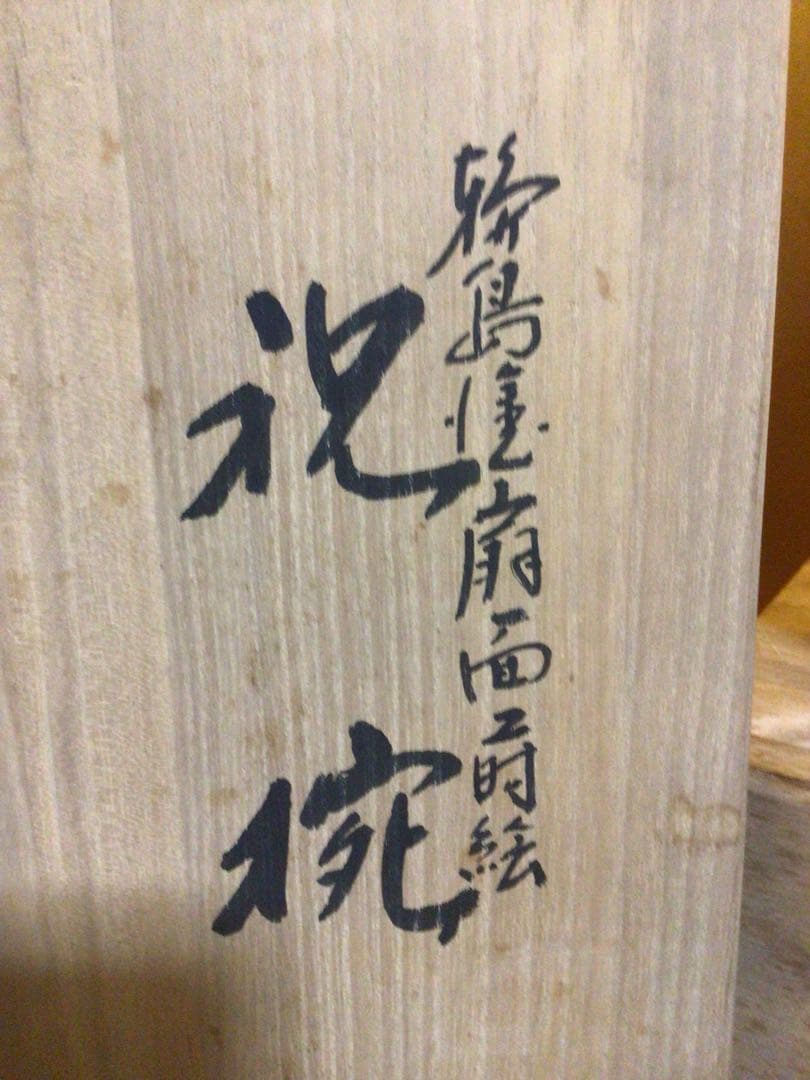 輪島塗扇面蒔絵
祝椀